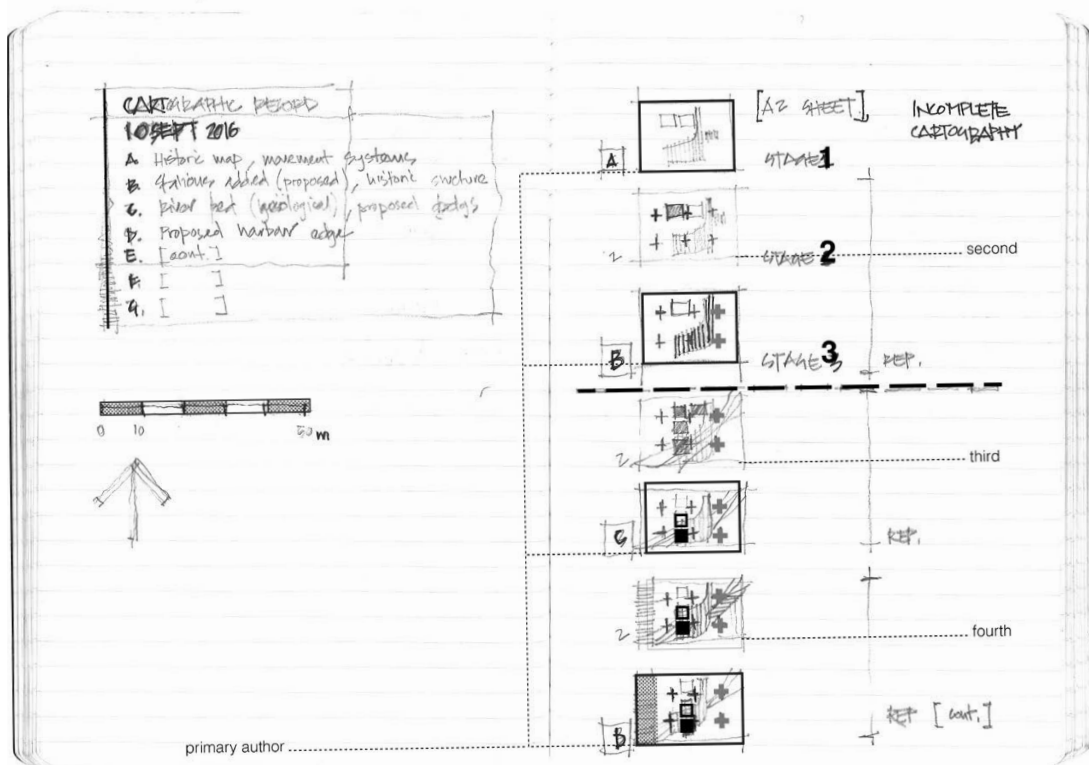 CARTOGRAPHIC RECORD
10 SEPT 2016
A. Historic map, movement systems
B. Stations added (proposed), historic structure
C. River bed (geological), proposed
D. Proposed harbour edge
E. [cont.]
F. [ ]
G. [ ]
0 10 50 m
primary author
[A2 SHEET]
INCOMPLETE
CARTOGRAPHY
A
STAGE 1
2
STAGE 2
second
B
STAGE 3
REP.
2
third
C
REP.
2
fourth
B
REP [cont.]